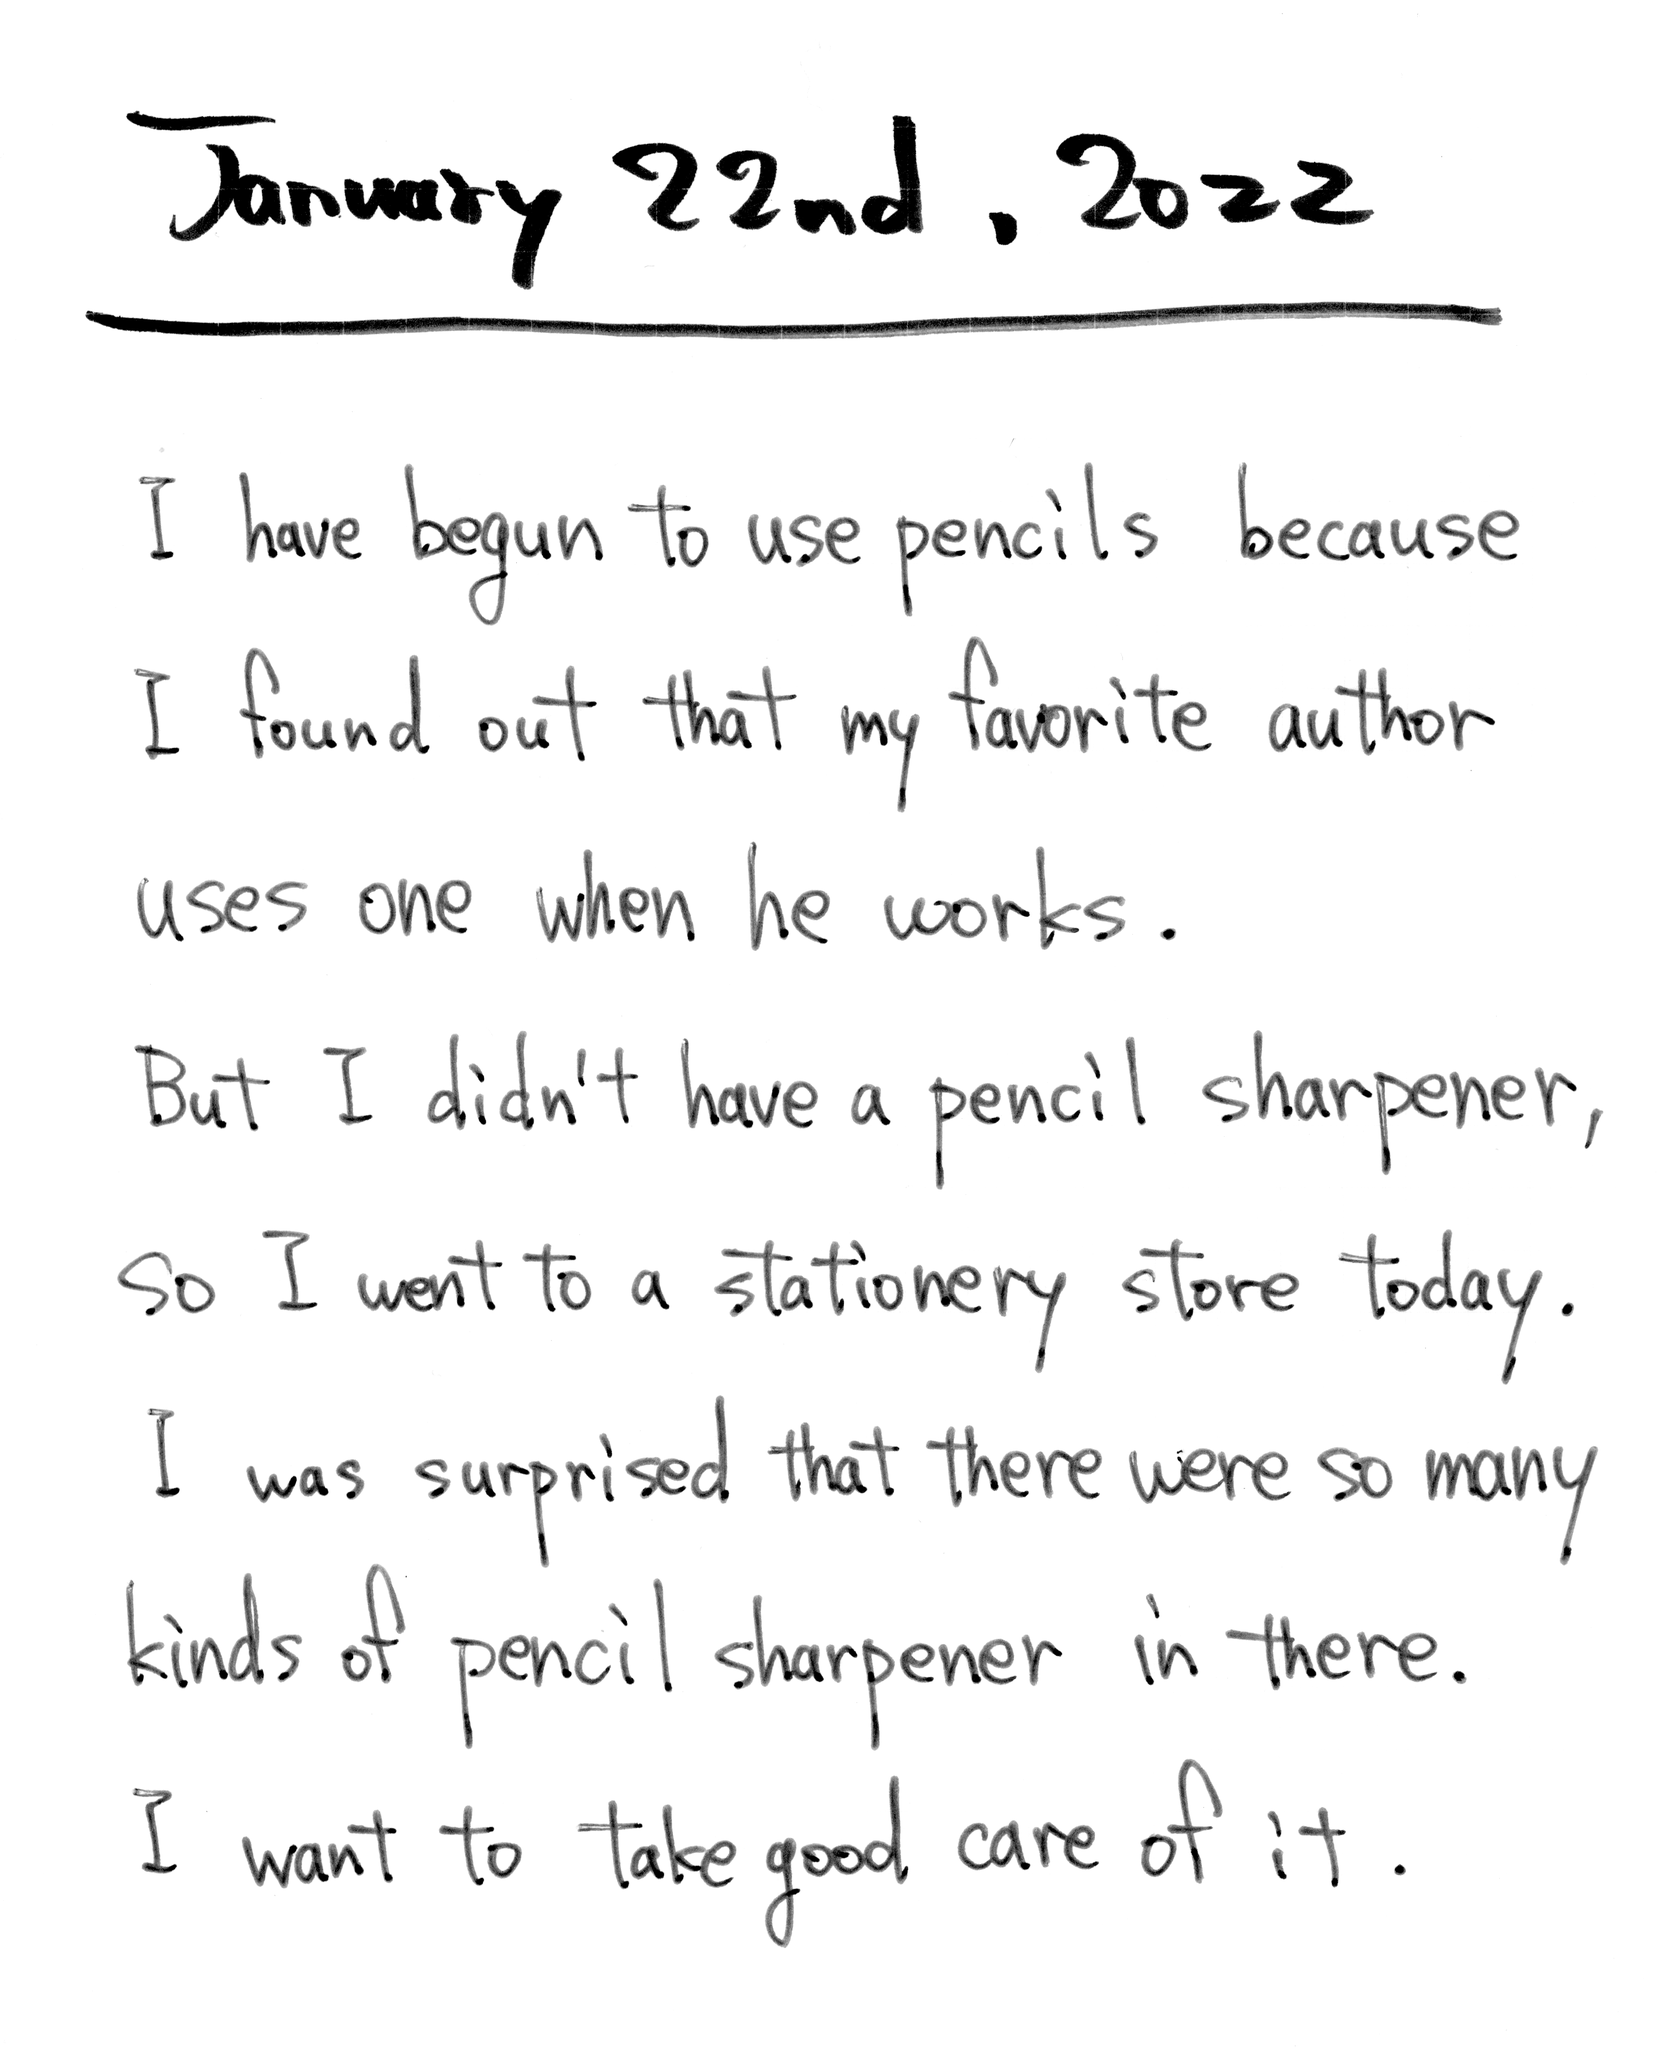 January 22nd, 2022
I have begun to use pencils because
I found out that my favorite author
uses one when he works.
But I didn't have a pencil sharpener,
so I went to a stationery store today.
I was surprised that there were so many
kinds of pencil sharpener in there.
I want to take good care of it.